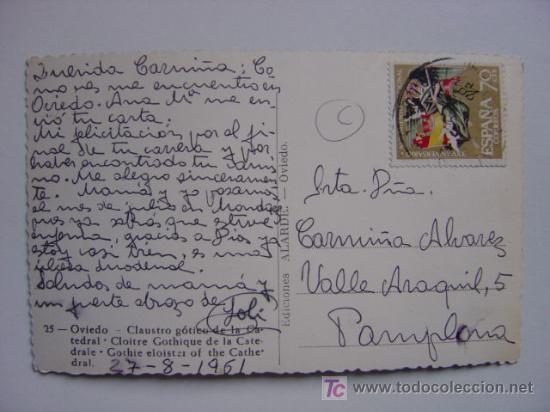 Querida Carmiña: Co-
mo ves me encuentro en
Oviedo. Ana Mª me en-
vió tu carta.
Mi felicitación por el fi-
nal de tu carrera y por
haber encontrado tu
no. Me alegro sinceramen-
te. Mamá y yo pasamos
el mes de julio en
ya sabrás que estuve
enferma, gracias a Dios ya
estoy casi bien, es una
úlcera duodenal.
Saludos de mamá y
un fuerte abrazo de
Loli
25 — Oviedo - Claustro gótico de la Ca-
tedral · Cloitre Gothique de la Cate-
drale · Gothie eloister of the Cathe-
dral.
27-8-1961
Ediciones ALARDE. — Oviedo.
ESPAÑA
70 CTS
CORREOS
C
Srta. Dña.
Carmiña Alvarez
Valle Araquil, 5
Pamplona
todocoleccion
www.todocoleccion.net